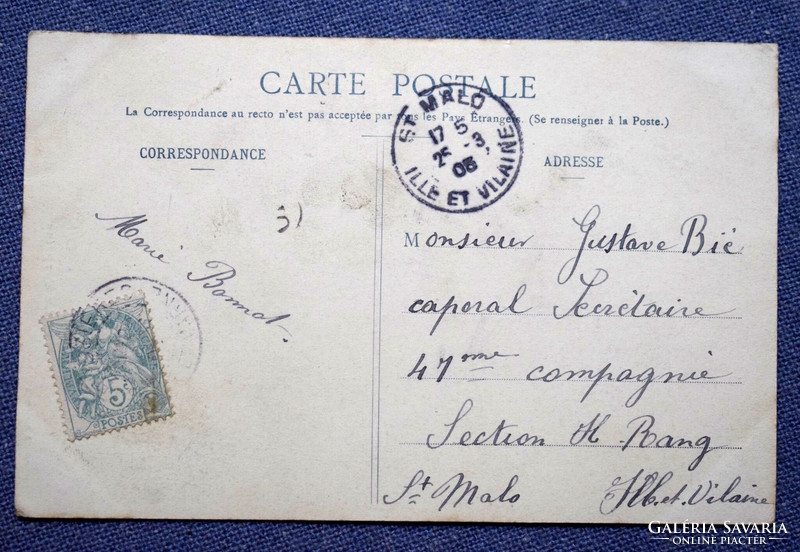 CARTE POSTALE
La Correspondance au recto n'est pas acceptée par tous les Pays Étrangers. (Se renseigner à la Poste.)
CORRESPONDANCE
ADRESSE
ST MALO
17 5
25 -3.
05
ILLE ET VILAINE
Marie Bonnot.
Monsieur Gustave Bié
caporal Secrétaire
47me compagnie
Section H. Rang
St Malo Ille.et.Vilaine
5c
POSTES
GALÉRIA SAVARIA
ONLINE PIACTÉR